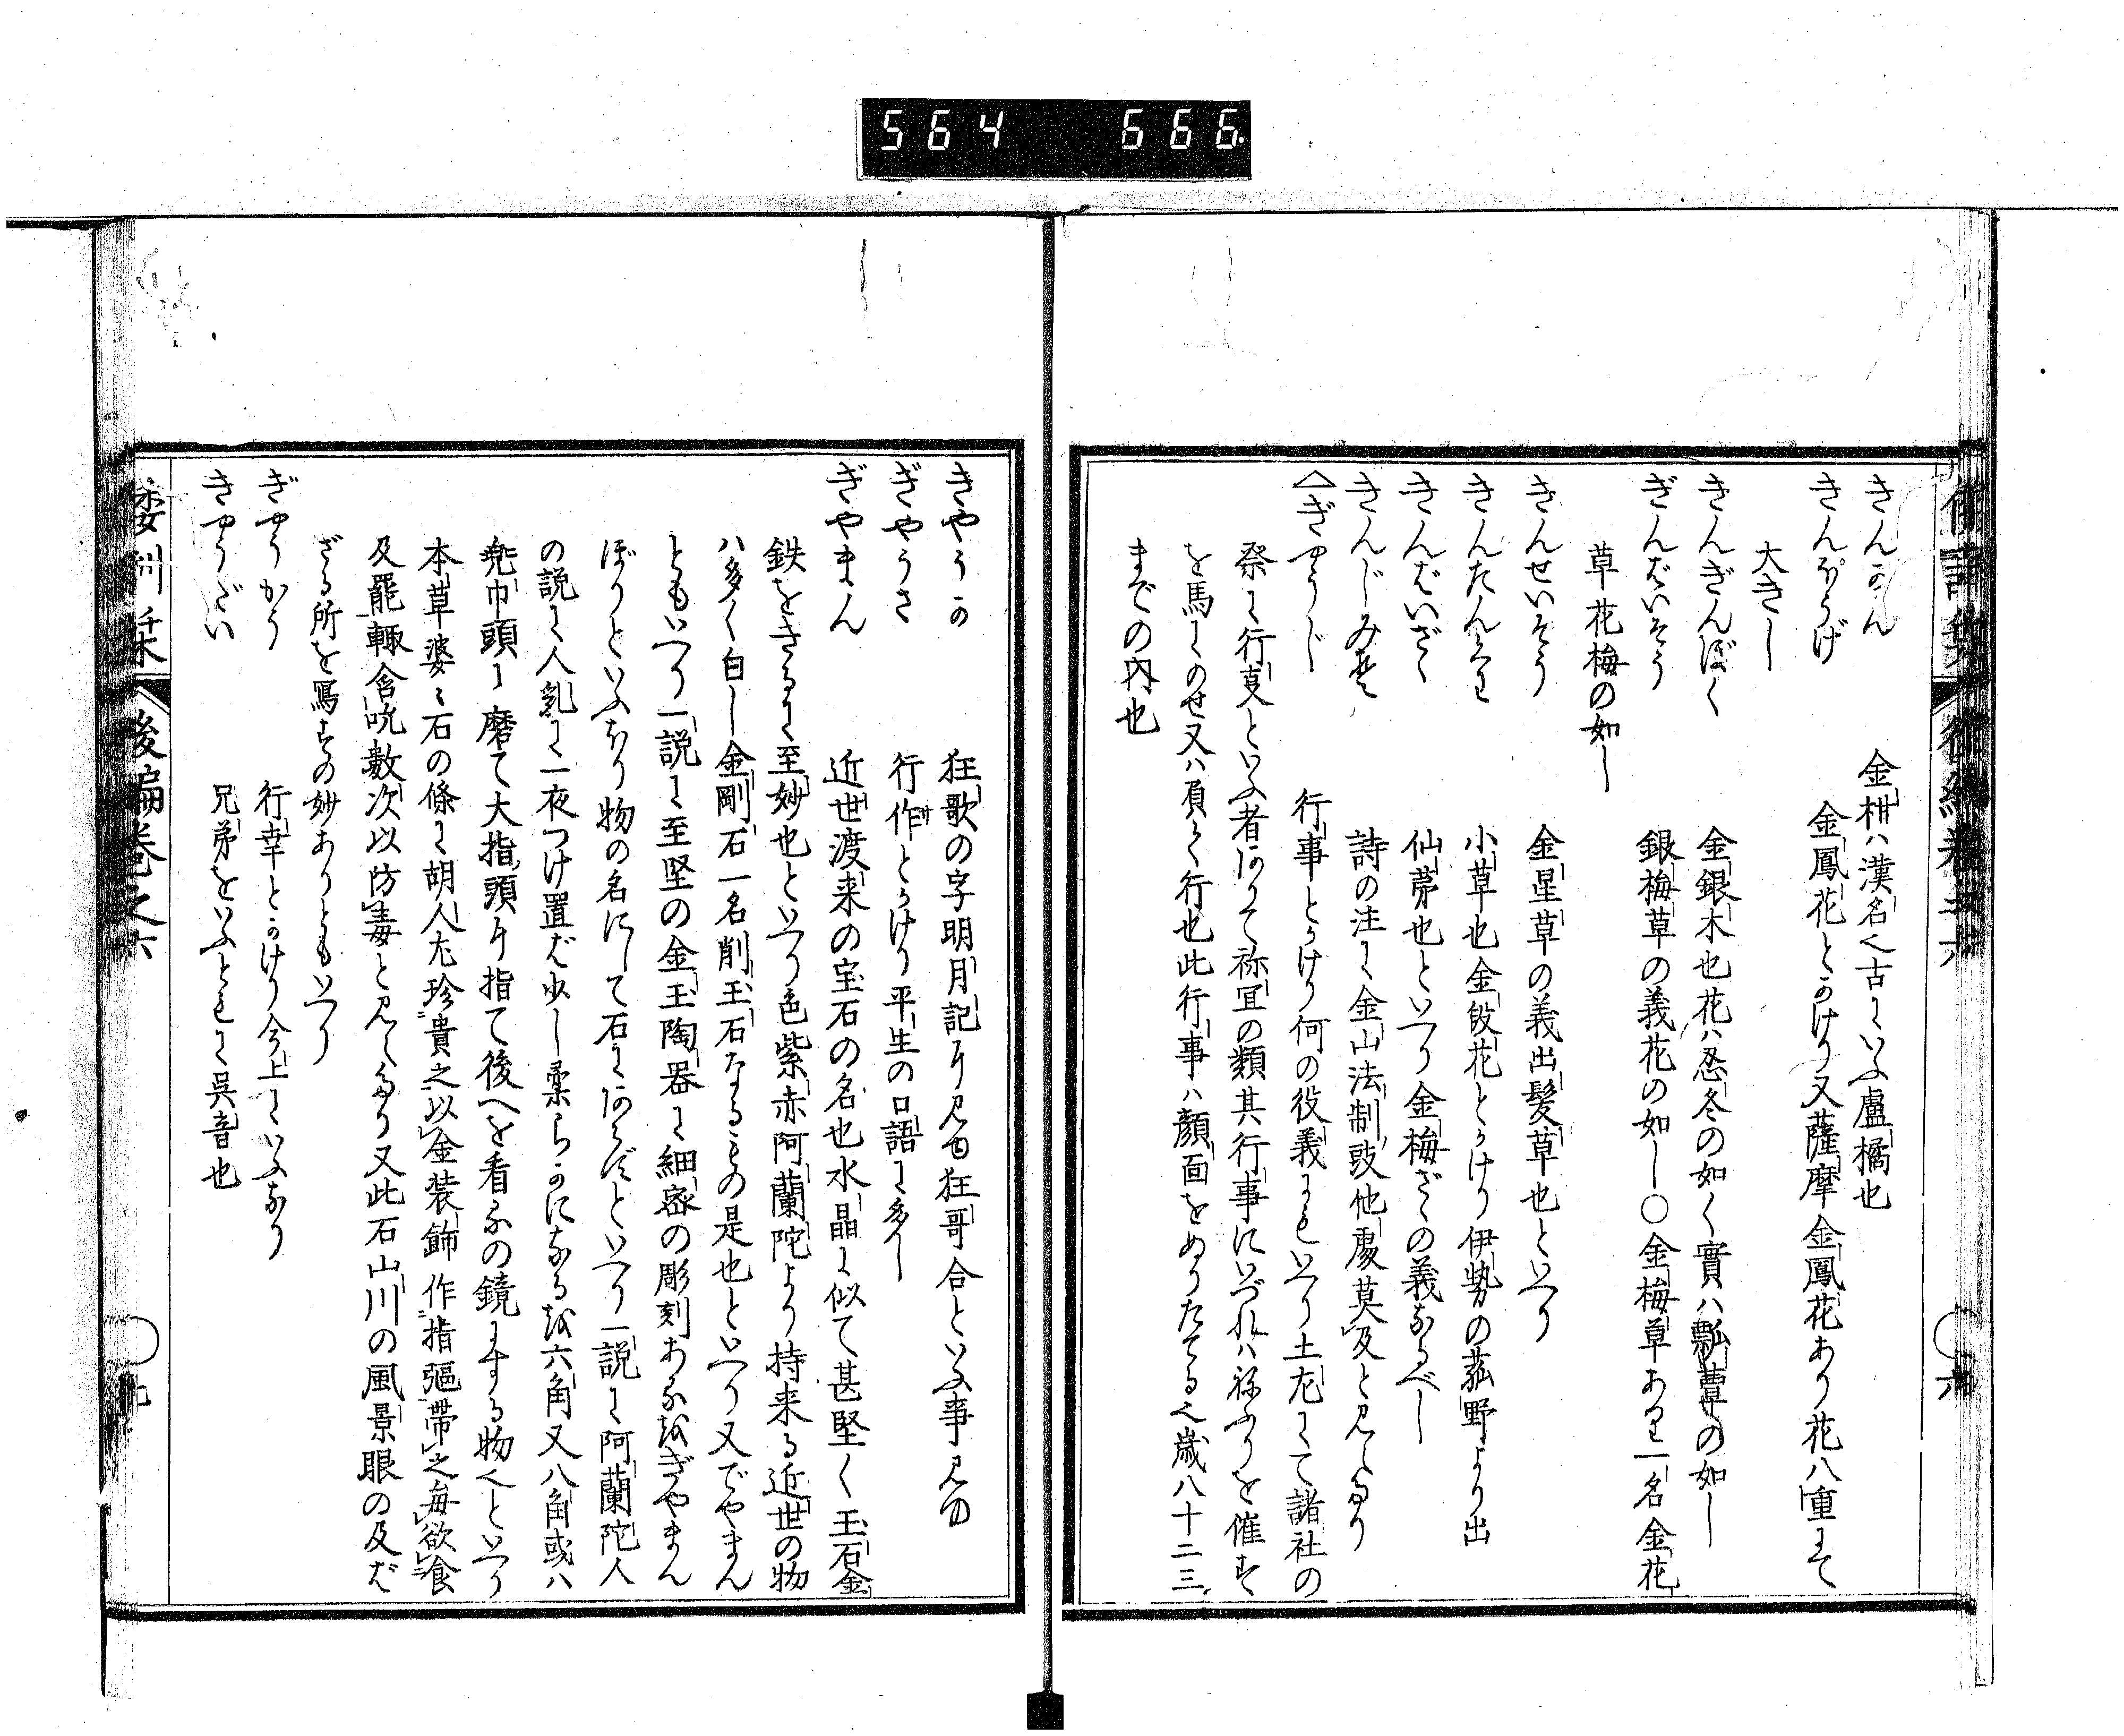 564 666
きんかん 金柑ハ漢名也古にいふ盧橘也
きんほうげ 金鳳花とかけり又薩摩金鳳花あり花八重にて
大きし
きんぎんぼく 金銀木也花ハ忍冬の如く實ハ瓢箪の如し
ぎんばいそう 銀梅草の義花の如し〇金梅草あり一名金花
草花梅の如し
きんせいそう 金星草の義出髪草也といへり
きんたんくわ 小草也金段花とかけり伊勢の菰野より出
きんばいざゝ 仙茅也といへり金梅ざゝの義なるべし
きんじみそ 詩の注に金山法制豉他處莫及と見えたり
ぎやうじ 行事とかけり何の役義にもいへり土左にて諸社の
祭に行夏といふ者ありて祢宜の類其行事にいづれハ祢ふりを催すを
を馬にのせ又ハ負て行也此行事ハ顔面をぬりたてる也歳八十二三
までの内也
きやうか 狂歌の字明月記に見ゆ狂哥合といふ事見ゆ
ぎやうさ 行作とかけり平生の口語に多し
ぎやまん 近世渡来の宝石の名也水晶に似て甚堅く玉石金
鉄をきるに至妙也といへり色紫赤阿蘭陀より持来る近世の物
ハ多く白し金剛石一名削玉石なるもの是也といへり又でやまん
ともいへり一説に至堅の金玉陶器に細密の彫刻あるをぎやまん
ぼりといふより物の名にして石にあらずといへり一説に阿蘭陀人
の説に人乳に一夜つけ置ば少し柔らかになるを六角又八角或ハ
兜巾頭に磨て大指頭に指て後へを看るの鏡にする物也といへり
本草婆〻石の條に胡人尤珍貴之以金装飾作指彄帯之毎欲食
及罷輙含吮數次以防毒と見えたり又此石山川の風景眼の及ば
ざる所を寫すの妙ありともいへり
ぎやうかう 行幸とかけり今上にいふなり
きやうだい 兄弟をいふともに呉音也
倭訓栞 後編巻之六 九